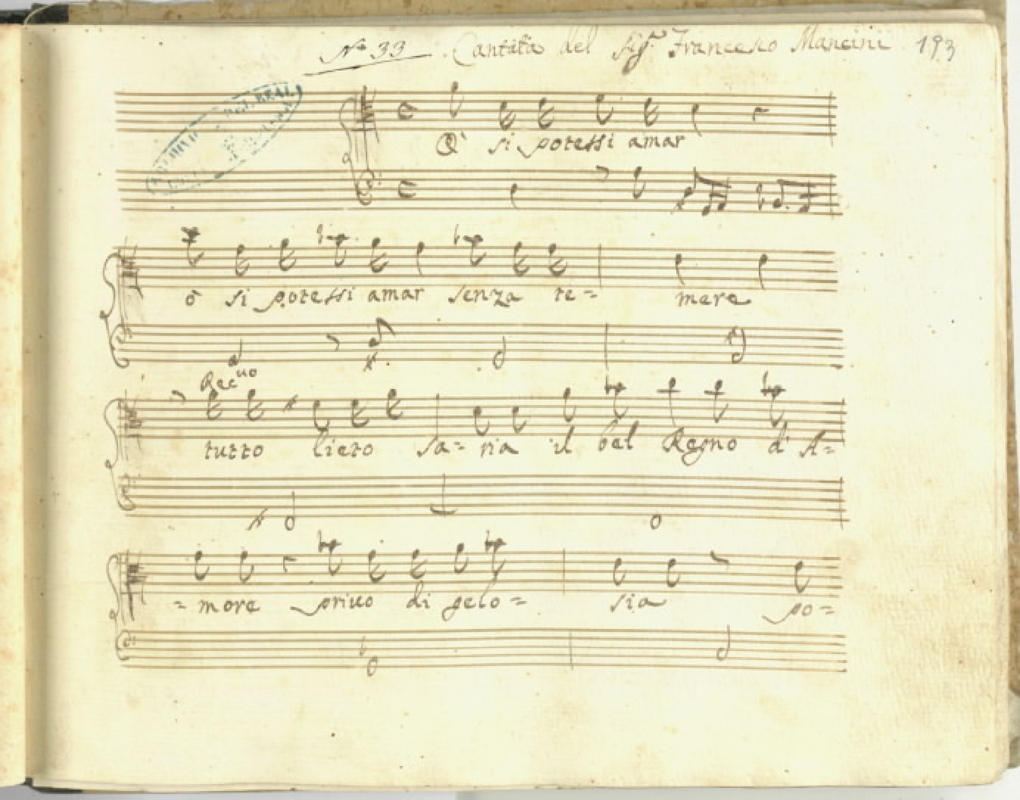 Nº 33 Cantata del Sigr. Francesco Mancini 193
O' si potessi amar
ò si potessi amar senza te=
mere
Recvo
tutto lieto sa=ria il bel Regno d'A=
=more privo di gelo=sia po=